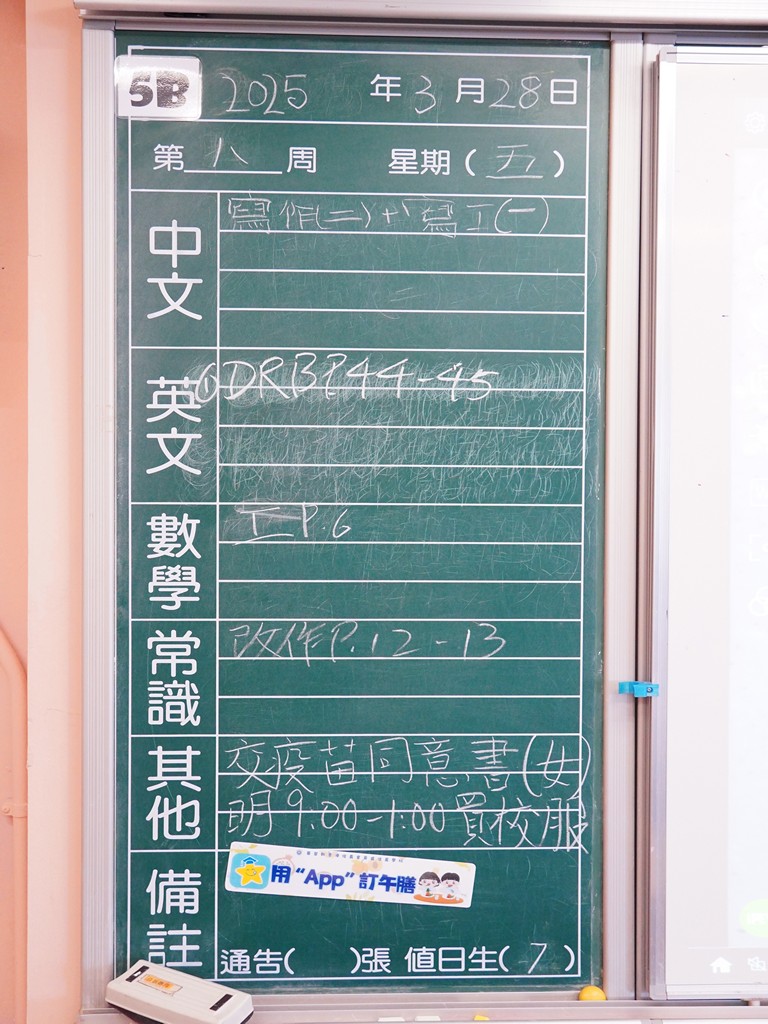 5B 2025 年 3 月 28 日
第 八 周 星期 ( 五 )
中文
寫作(二)+寫工(一)
英文
①DRB P.44-45
數學
工 P.6
常識
改作P.12-13
其他
交疫苗同意書(女)
明9:00-1:00買校服
備註
用 “App” 訂午膳
通告( )張 值日生( 7 )